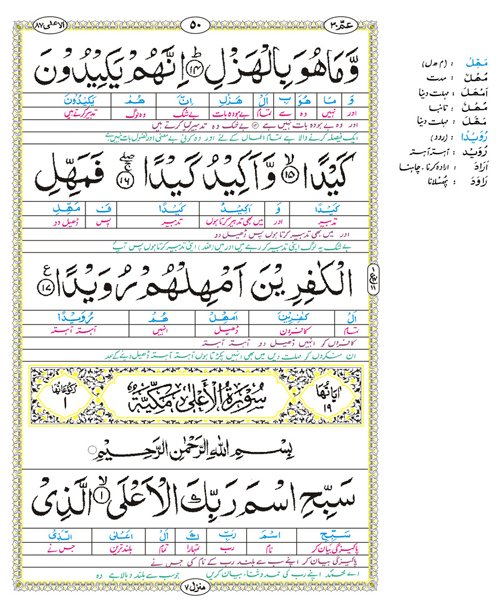 عمّ ٣٠
٥٠
الاعلى ٨٧
وَّمَا هُوَ بِالْهَزْلِ ﴿١٤﴾ اِنَّهُمْ يَكِيْدُوْنَ
وَ مَا هُوَ بِ الْ هَزْلِ اِنَّ هُمْ يَكِيْدُوْنَ
اور نہیں وہ سے تمام بے ہودہ بات بے شک وہ لوگ تدبیر کرتے ہیں
اور وہ بے ہودہ بات نہیں ہے بے شک وہ تدبیریں کرتے ہیں
كَيْدًا ﴿١٥﴾ وَّاَكِيْدُ كَيْدًا ﴿١٦﴾ فَمَهِّلِ
كَيْدًا وَ اَكِيْدُ كَيْدًا فَ مَهِّلِ
تدبیر اور میں بھی تدبیر کرتا ہوں تدبیر پس ڈھیل دو
اور میں بھی تدبیر کرتا ہوں پس ڈھیل دو
بے شک یہ لوگ اپنی تدبیر کر رہے ہیں اور میں (اللہ) اپنی تدبیر کرتا ہوں پس آپ
الْكٰفِرِيْنَ اَمْهِلْهُمْ رُوَيْدًا ﴿١٧﴾ ع
الْ كٰفِرِيْنَ اَمْهِلْ هُمْ رُوَيْدًا
تمام کافروں ڈھیل انہیں آہستہ آہستہ
کافروں کو انہیں ڈھیل دو آہستہ آہستہ
ان منکروں کو مہلت دیں میں بھی انہیں پکڑتا ہوں آہستہ آہستہ ڈھیل دینے کے بعد
اٰيَاتُهَا ١٩
سُوْرَةُ الْاَعْلٰى مَكِّيَّةٌ
رُكُوْعُهَا ١
بِسْمِ اللهِ الرَّحْمٰنِ الرَّحِيْمِ
سَبِّحِ اسْمَ رَبِّكَ الْاَعْلَى ﴿١﴾ الَّذِىْ
سَبِّحِ اسْمَ رَبِّ كَ الْ اَعْلَى الَّذِىْ
پاکیزگی بیان کر نام رب تمہارا تمام بلند ترین جس نے
پاکیزگی بیان کر اپنے سب سے بلند رب کے نام کی جس نے
اے محمد اپنے رب کی حمد و ثنا بیان کریں جو سب سے بلند و بالا ہے وہ
منزل ٧
مَهِّلْ : (م ہ ل)
مُهْلٌ : مدت
اَمْهَلَ : مہلت دینا
مُهْلٌ : تانبا
مَهَّلَ : مہلت دینا
رُوَيْدًا : (ر و د)
رُوَيْد : آہستہ آہستہ
اَرَادَ : ارادہ کرنا، چاہنا
رَاوَدَ : پھسلانا